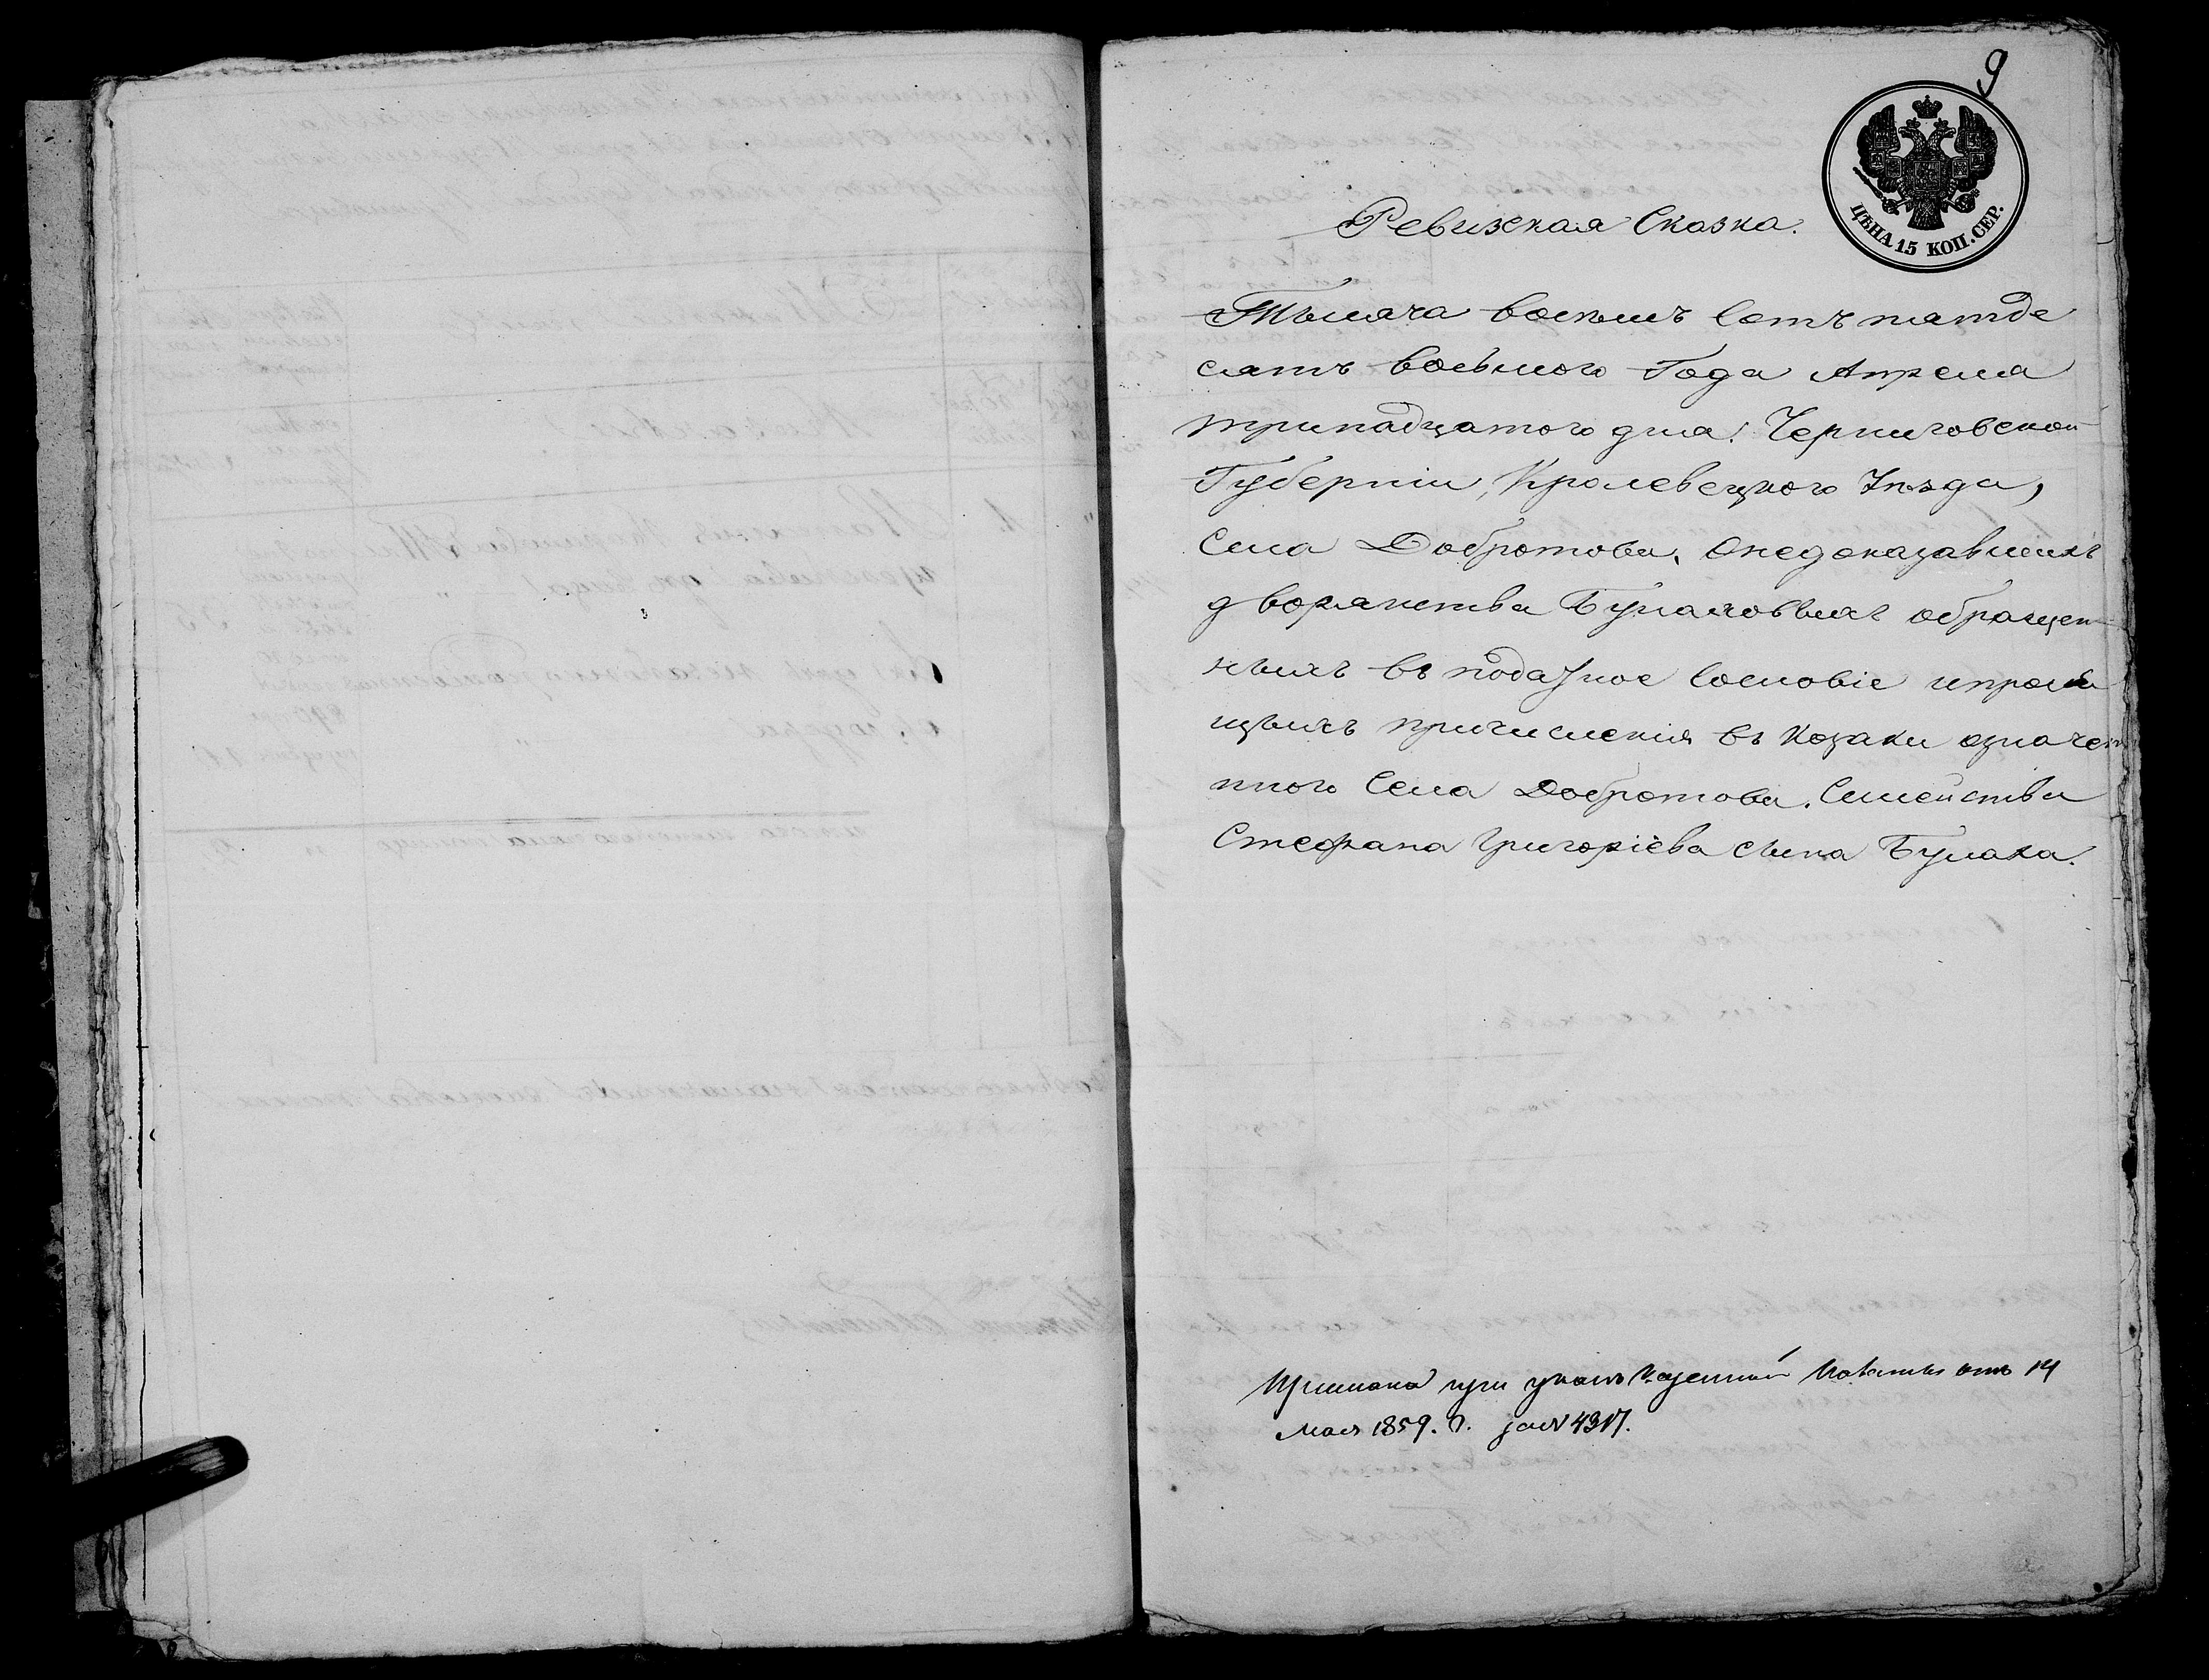 9
ЦѢНА 15 КОП. СЕР.
Ревизская Сказка.
Тысяча восемь сотъ пятде
сятъ восьмого Года Апреля
тринадцатого дня. Черниговской
Губерніи, Кролевецкого Уѣзда,
Села Добротова, Онедоказавшихъ
дворянства Булаховыхъ обращен-
ныхъ въ податное сословіе ипрося
щихъ причисленія въ Козаки означен
нного Села Добротова. Семейства
Стефана Григоріева сына Булаха.
при указѣ Казенной Палаты отъ 14
мая 1859. г. за № 4317.